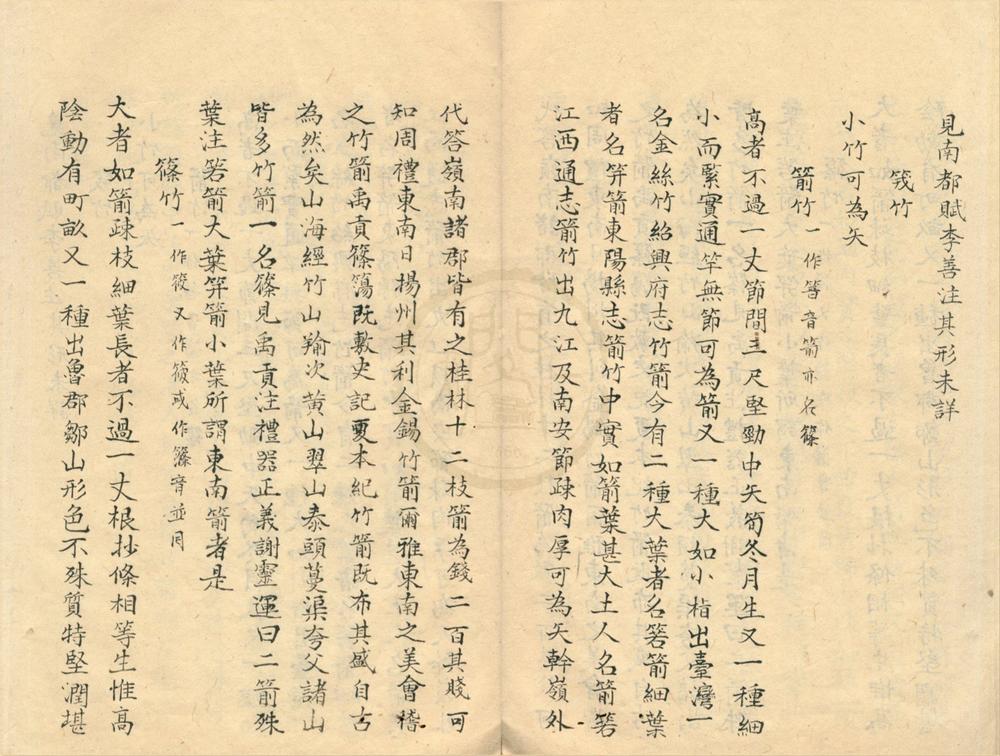 見南都賦李善注其形未詳
䇢竹
小竹可為矢
箭竹一作䇨音箭亦名篠
高者不過一丈節間三尺堅勁中矢筍冬月生又一種細
小而緊實通竿無節可為箭又一種大如小指出臺灣一
名金絲竹紹興府志竹箭今有二種大葉者名箬箭細葉
者名笄箭東陽縣志箭竹中實如箭葉甚大土人名箭箬
江西通志箭竹出九江及南安節疎肉厚可為矢幹嶺外
代答嶺南諸郡皆有之桂林十二枝箭為錢二百其賤可
知周禮東南曰揚州其利金錫竹箭爾雅東南之美會稽
之竹箭禹貢篠簜既敷史記夏本紀竹箭既布其盛自古
為然矣山海經竹山羭次黃山翠山泰頭蔓渠夸父諸山
皆多竹箭一名篠見禹貢注禮器正義謝靈運曰二箭殊
葉注箬箭大葉笄箭小葉所謂東南箭者是
篠竹一作筱又作䈾或作䉤音並同
大者如箭疎枝細葉長者不過一丈根抄條相等生惟高
陰動有町畝又一種出魯郡鄒山形色不殊質特堅潤堪